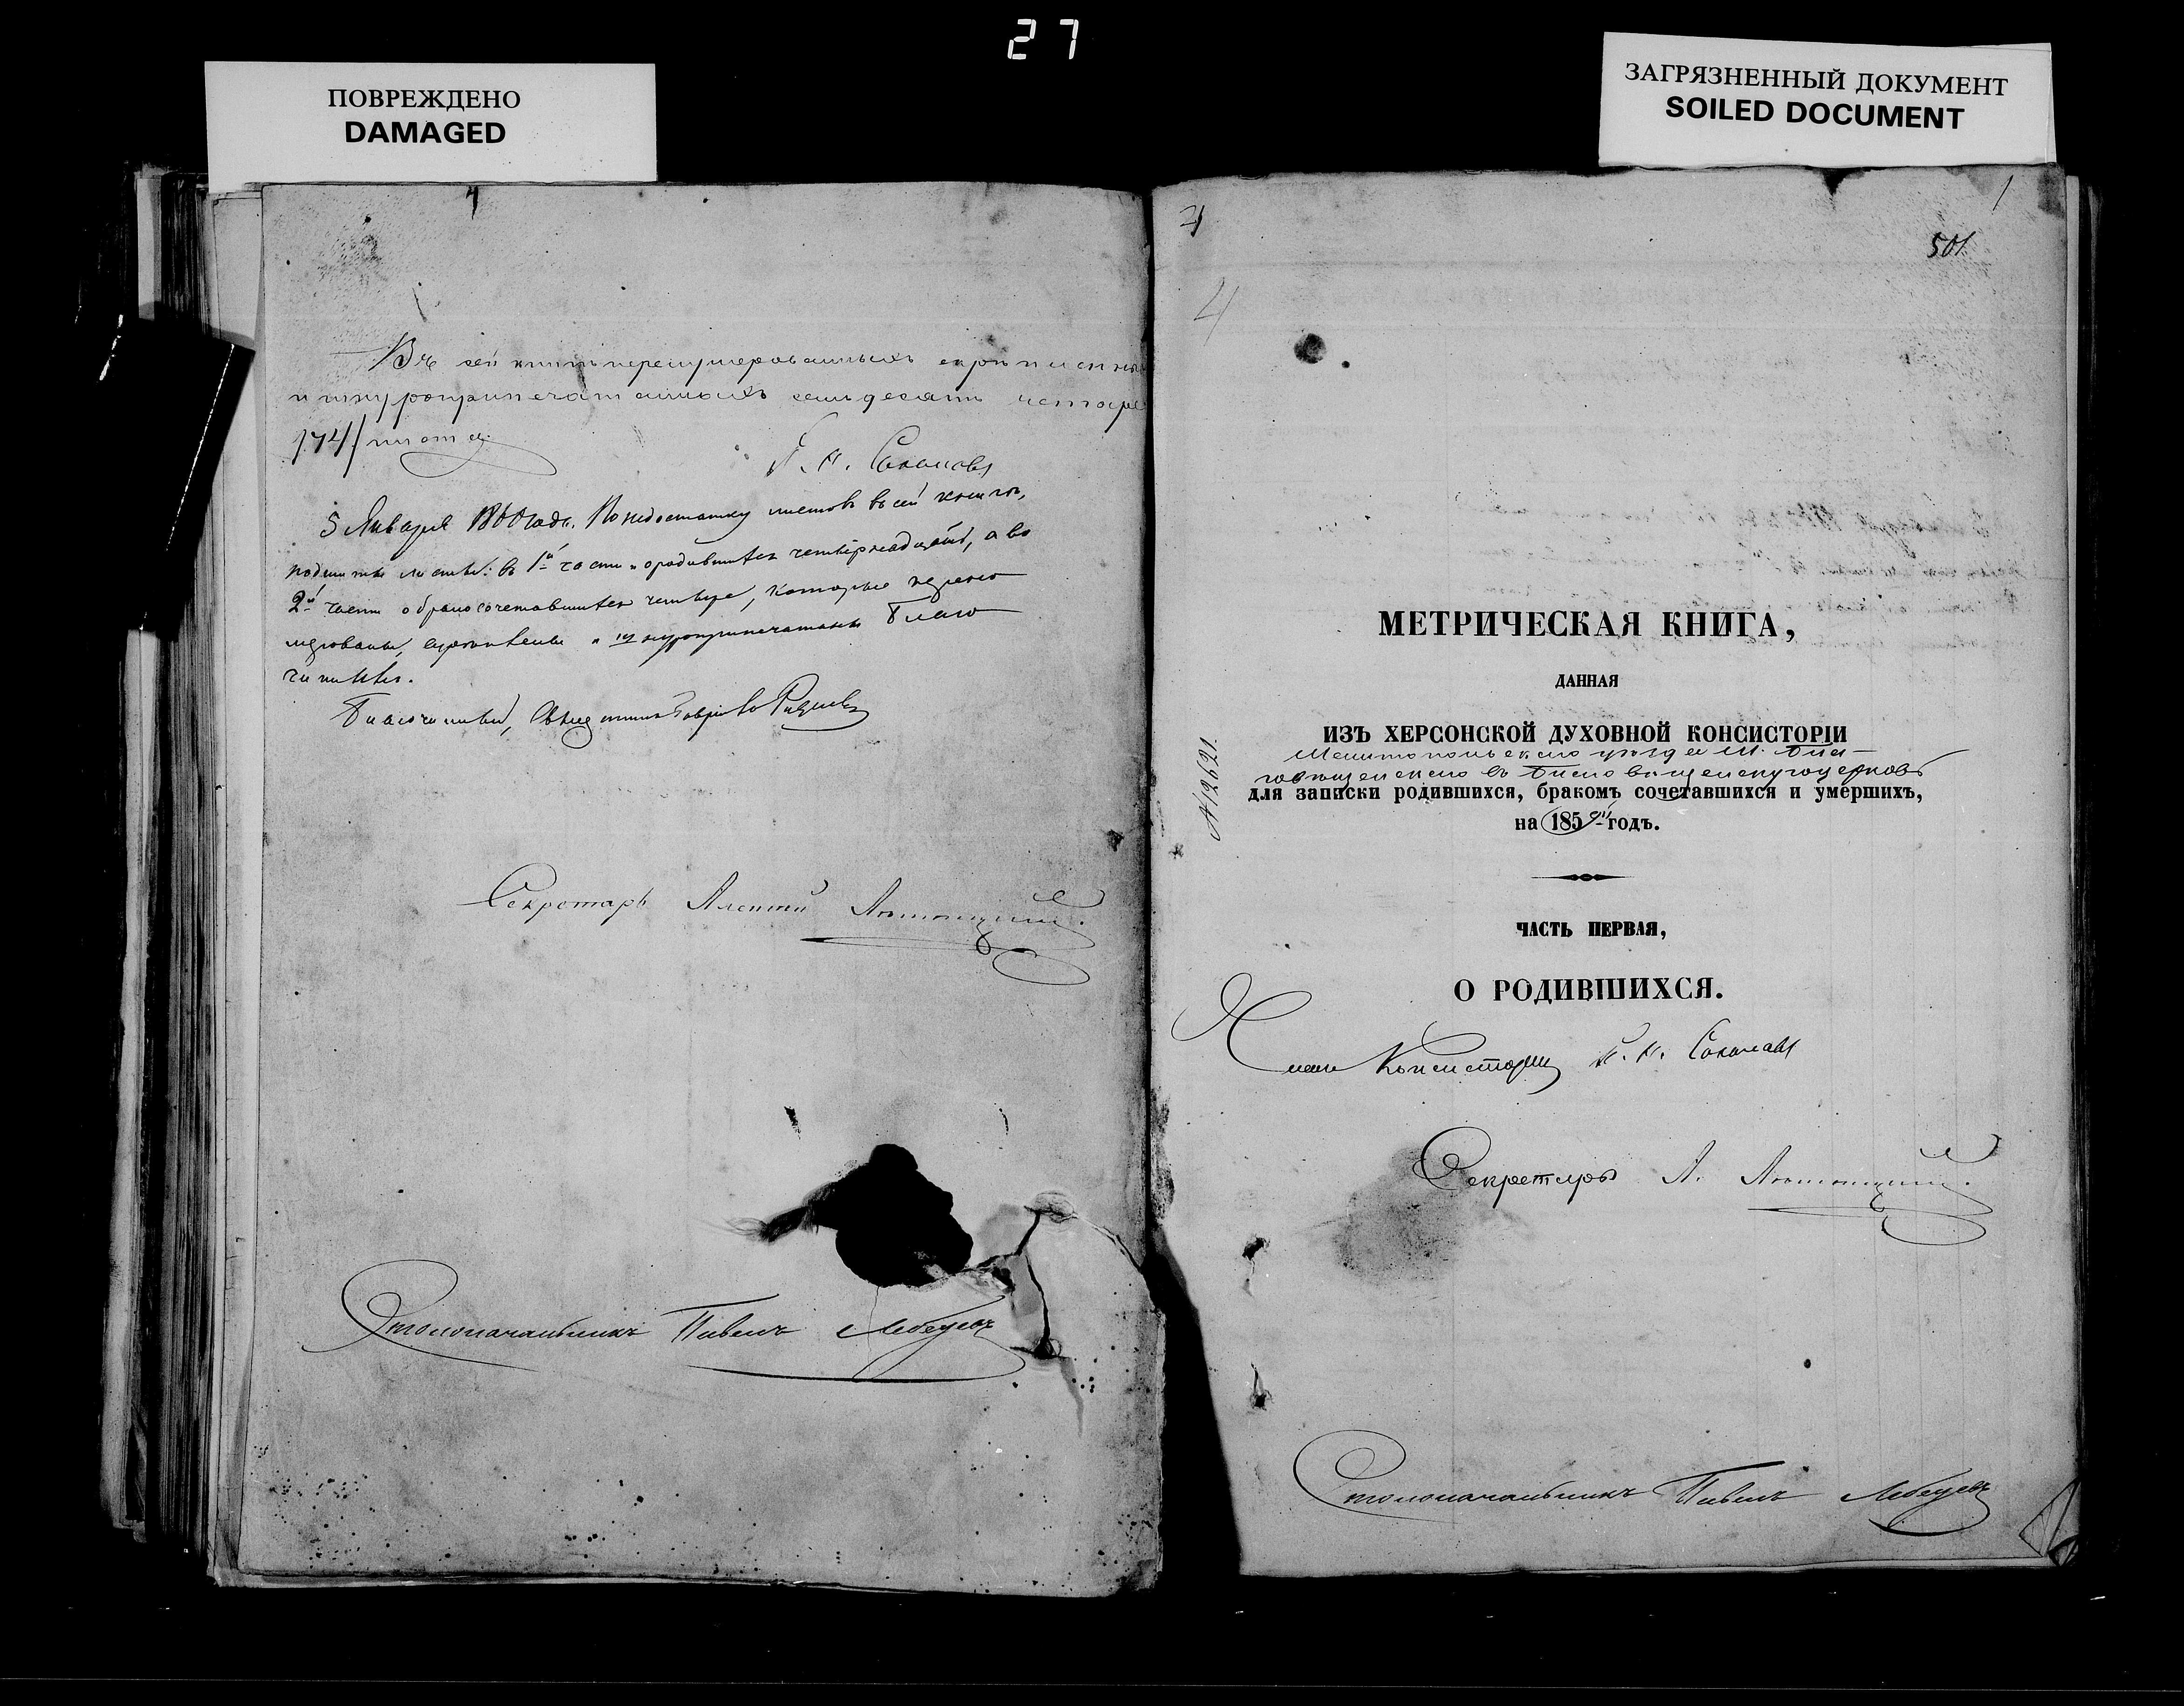 27
ПОВРЕЖДЕНО
DAMAGED
ЗАГРЯЗНЕННЫЙ ДОКУМЕНТ
SOILED DOCUMENT
Въ сей книгѣ перенумерованныхъ скрѣпленны
и шнуроприпечатанныхъ семьдесятъ четыре
/74/ листа.
Соколовъ
5 Января 1860 года. По недостатку листовъ въ сей книгѣ,
подшиты листы: въ 1й части о родившихся четырнадцать, а во
2й части о бракосочетавшихся четыре, которые перену
мерованы, скрѣплены и шнуроприпечатаны Благо
чиннымъ.
Благочинный, Священникъ
Секретарь
Столоначальникъ Павелъ Лебедевъ
4
1
501.
4
МЕТРИЧЕСКАЯ КНИГА,
ДАННАЯ
ИЗЪ ХЕРСОНСКОЙ ДУХОВНОЙ КОНСИСТОРІИ
Мелитопольскаго уѣзда м. Бла-
говѣщенскаго въ Благовѣщенскую церковь
для записки родившихся, бракомъ сочетавшихся и умершихъ,
на 1859й годъ.
№ 12621.
ЧАСТЬ ПЕРВАЯ,
О РОДИВШИХСЯ.
Членъ Консисторіи Соколовъ
Секретарь А.
Столоначальникъ Павелъ Лебедевъ